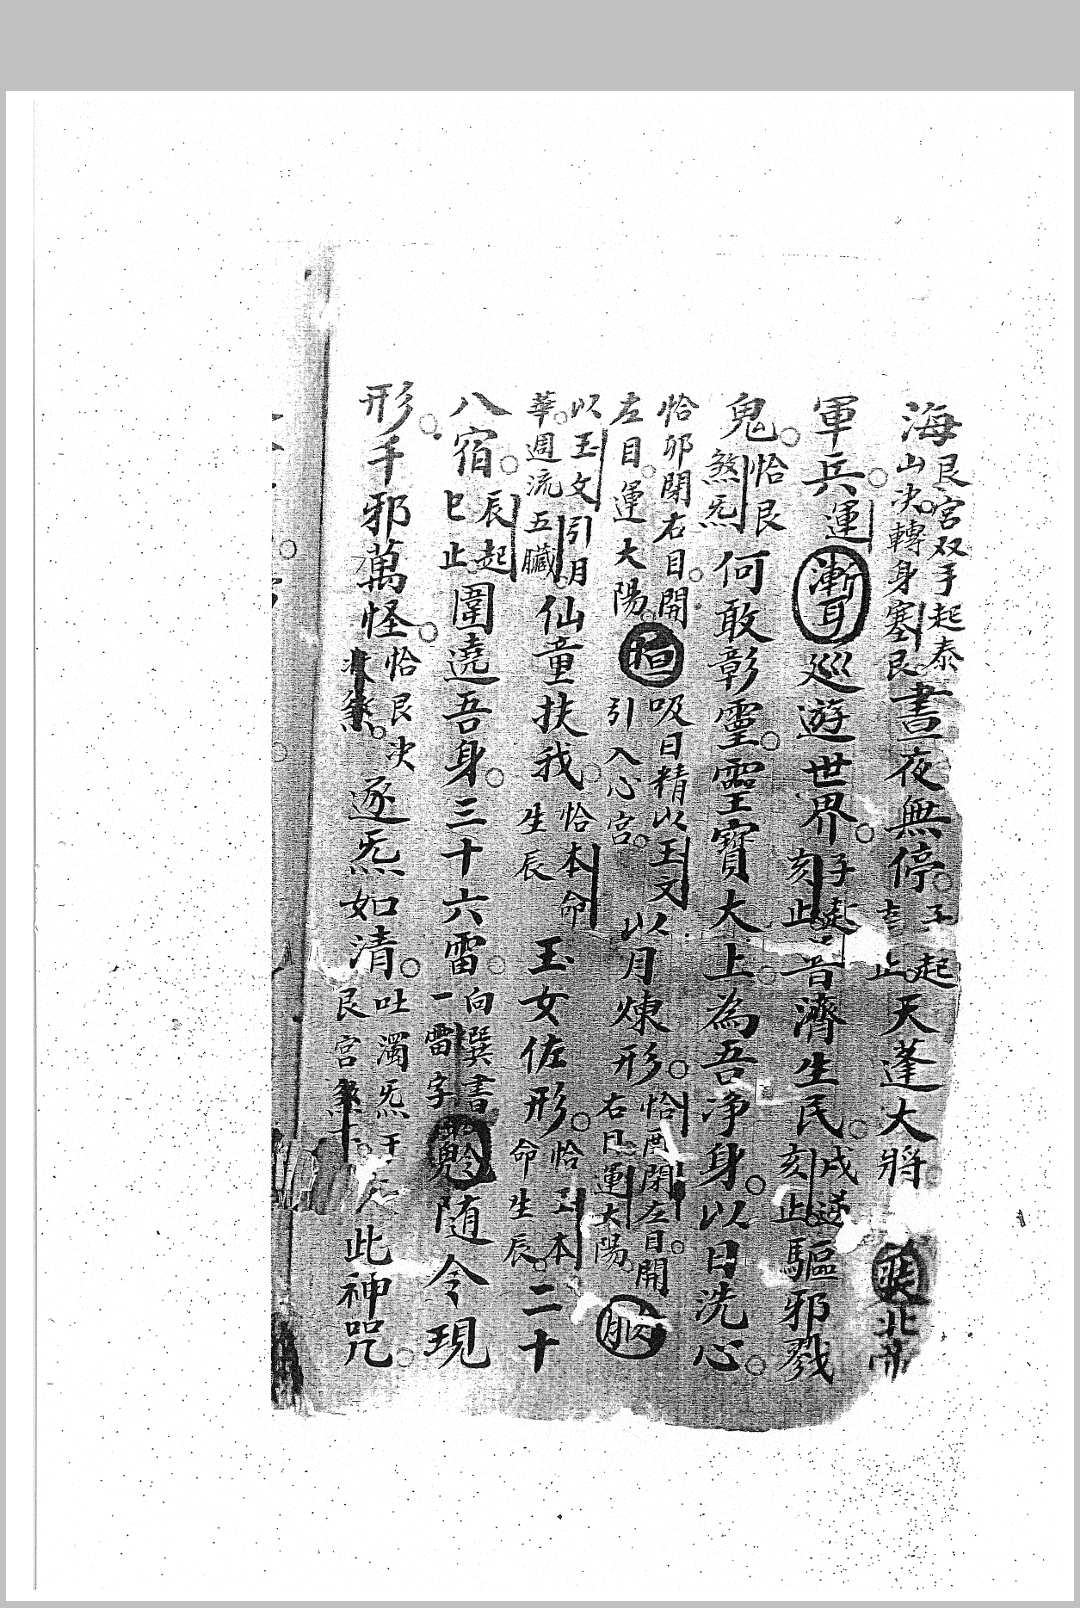 海艮宮双手起泰山决轉身塞艮晝夜無停子起止天蓬大將北帝
軍兵運巡遊世界子起刻止普濟生民戌逆亥止驅邪戮
鬼恰艮煞炁何敢彰靈靈寶大上為吾净身以日洗心
恰卯閉右目開左目運大陽吸日精以玉文引入心宮以月煉形恰酉閉左目開右目運太陽
以玉文引月華週流五臟仙童扶我恰本命生辰玉女佐形恰本命生辰二十
八宿辰起巳止圍遶吾身三十六雷向巽書一雷字隨令現
形千邪萬怪恰艮决逐炁如清吐濁炁于艮宮此神咒